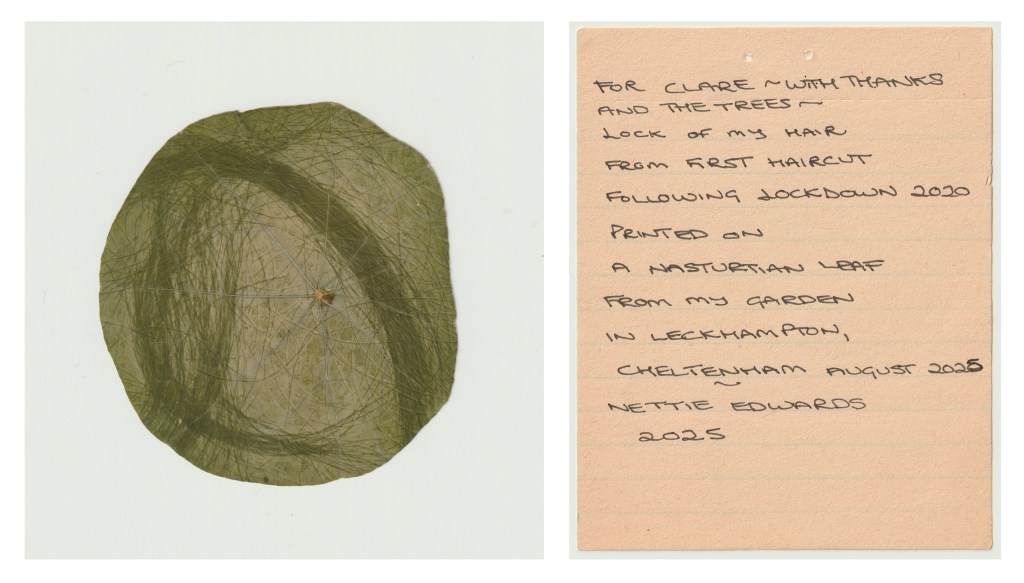 FOR CLARE ~ WITH THANKS
AND THE TREES ~
LOCK OF MY HAIR
FROM FIRST HAIRCUT
FOLLOWING LOCKDOWN 2020
PRINTED ON
A NASTURTIAN LEAF
FROM MY GARDEN
IN LECKHAMPTON,
CHELTENHAM AUGUST 2025
~
NETTIE EDWARDS
2025